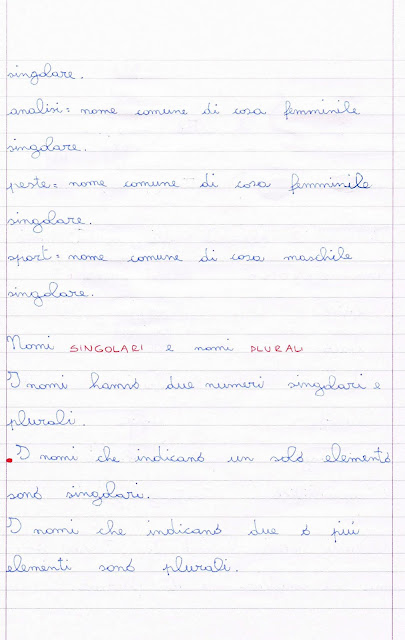 singolare.
analisi= nome comune di cosa femminile
singolare.
peste= nome comune di cosa femminile
singolare.
sport= nome comune di cosa maschile
singolare.
Nomi SINGOLARI e nomi PLURALI
I nomi hanno due numeri singolari e
plurali.
• I nomi che indicano un solo elemento
sono singolari.
I nomi che indicano due o più
elementi sono plurali.